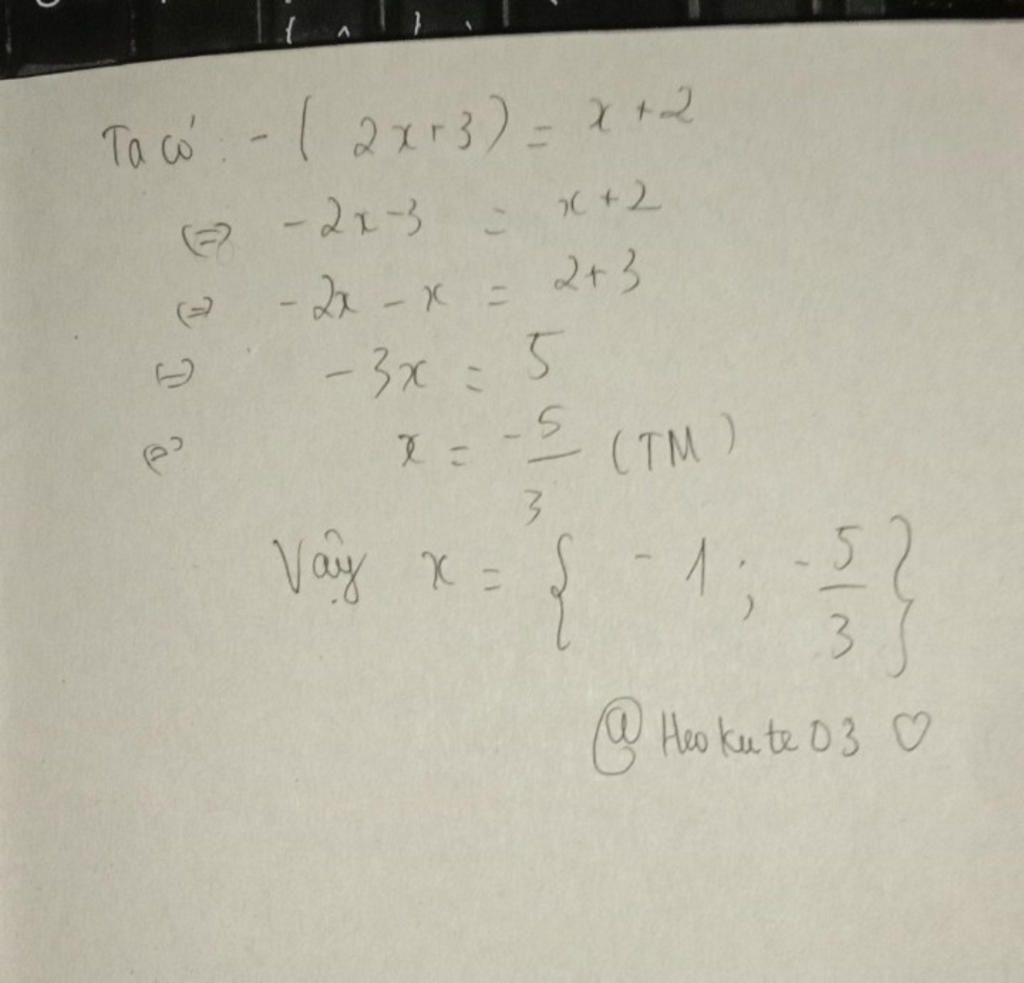 Ta có: - ( 2x+3) = x+2
⇔ -2x-3 = x+2
⇔ -2x - x = 2+3
⇔ -3x = 5
⇔ x = -5/3 (TM)
Vậy x = { -1 ; -5/3 }
@Heokute03 ♡